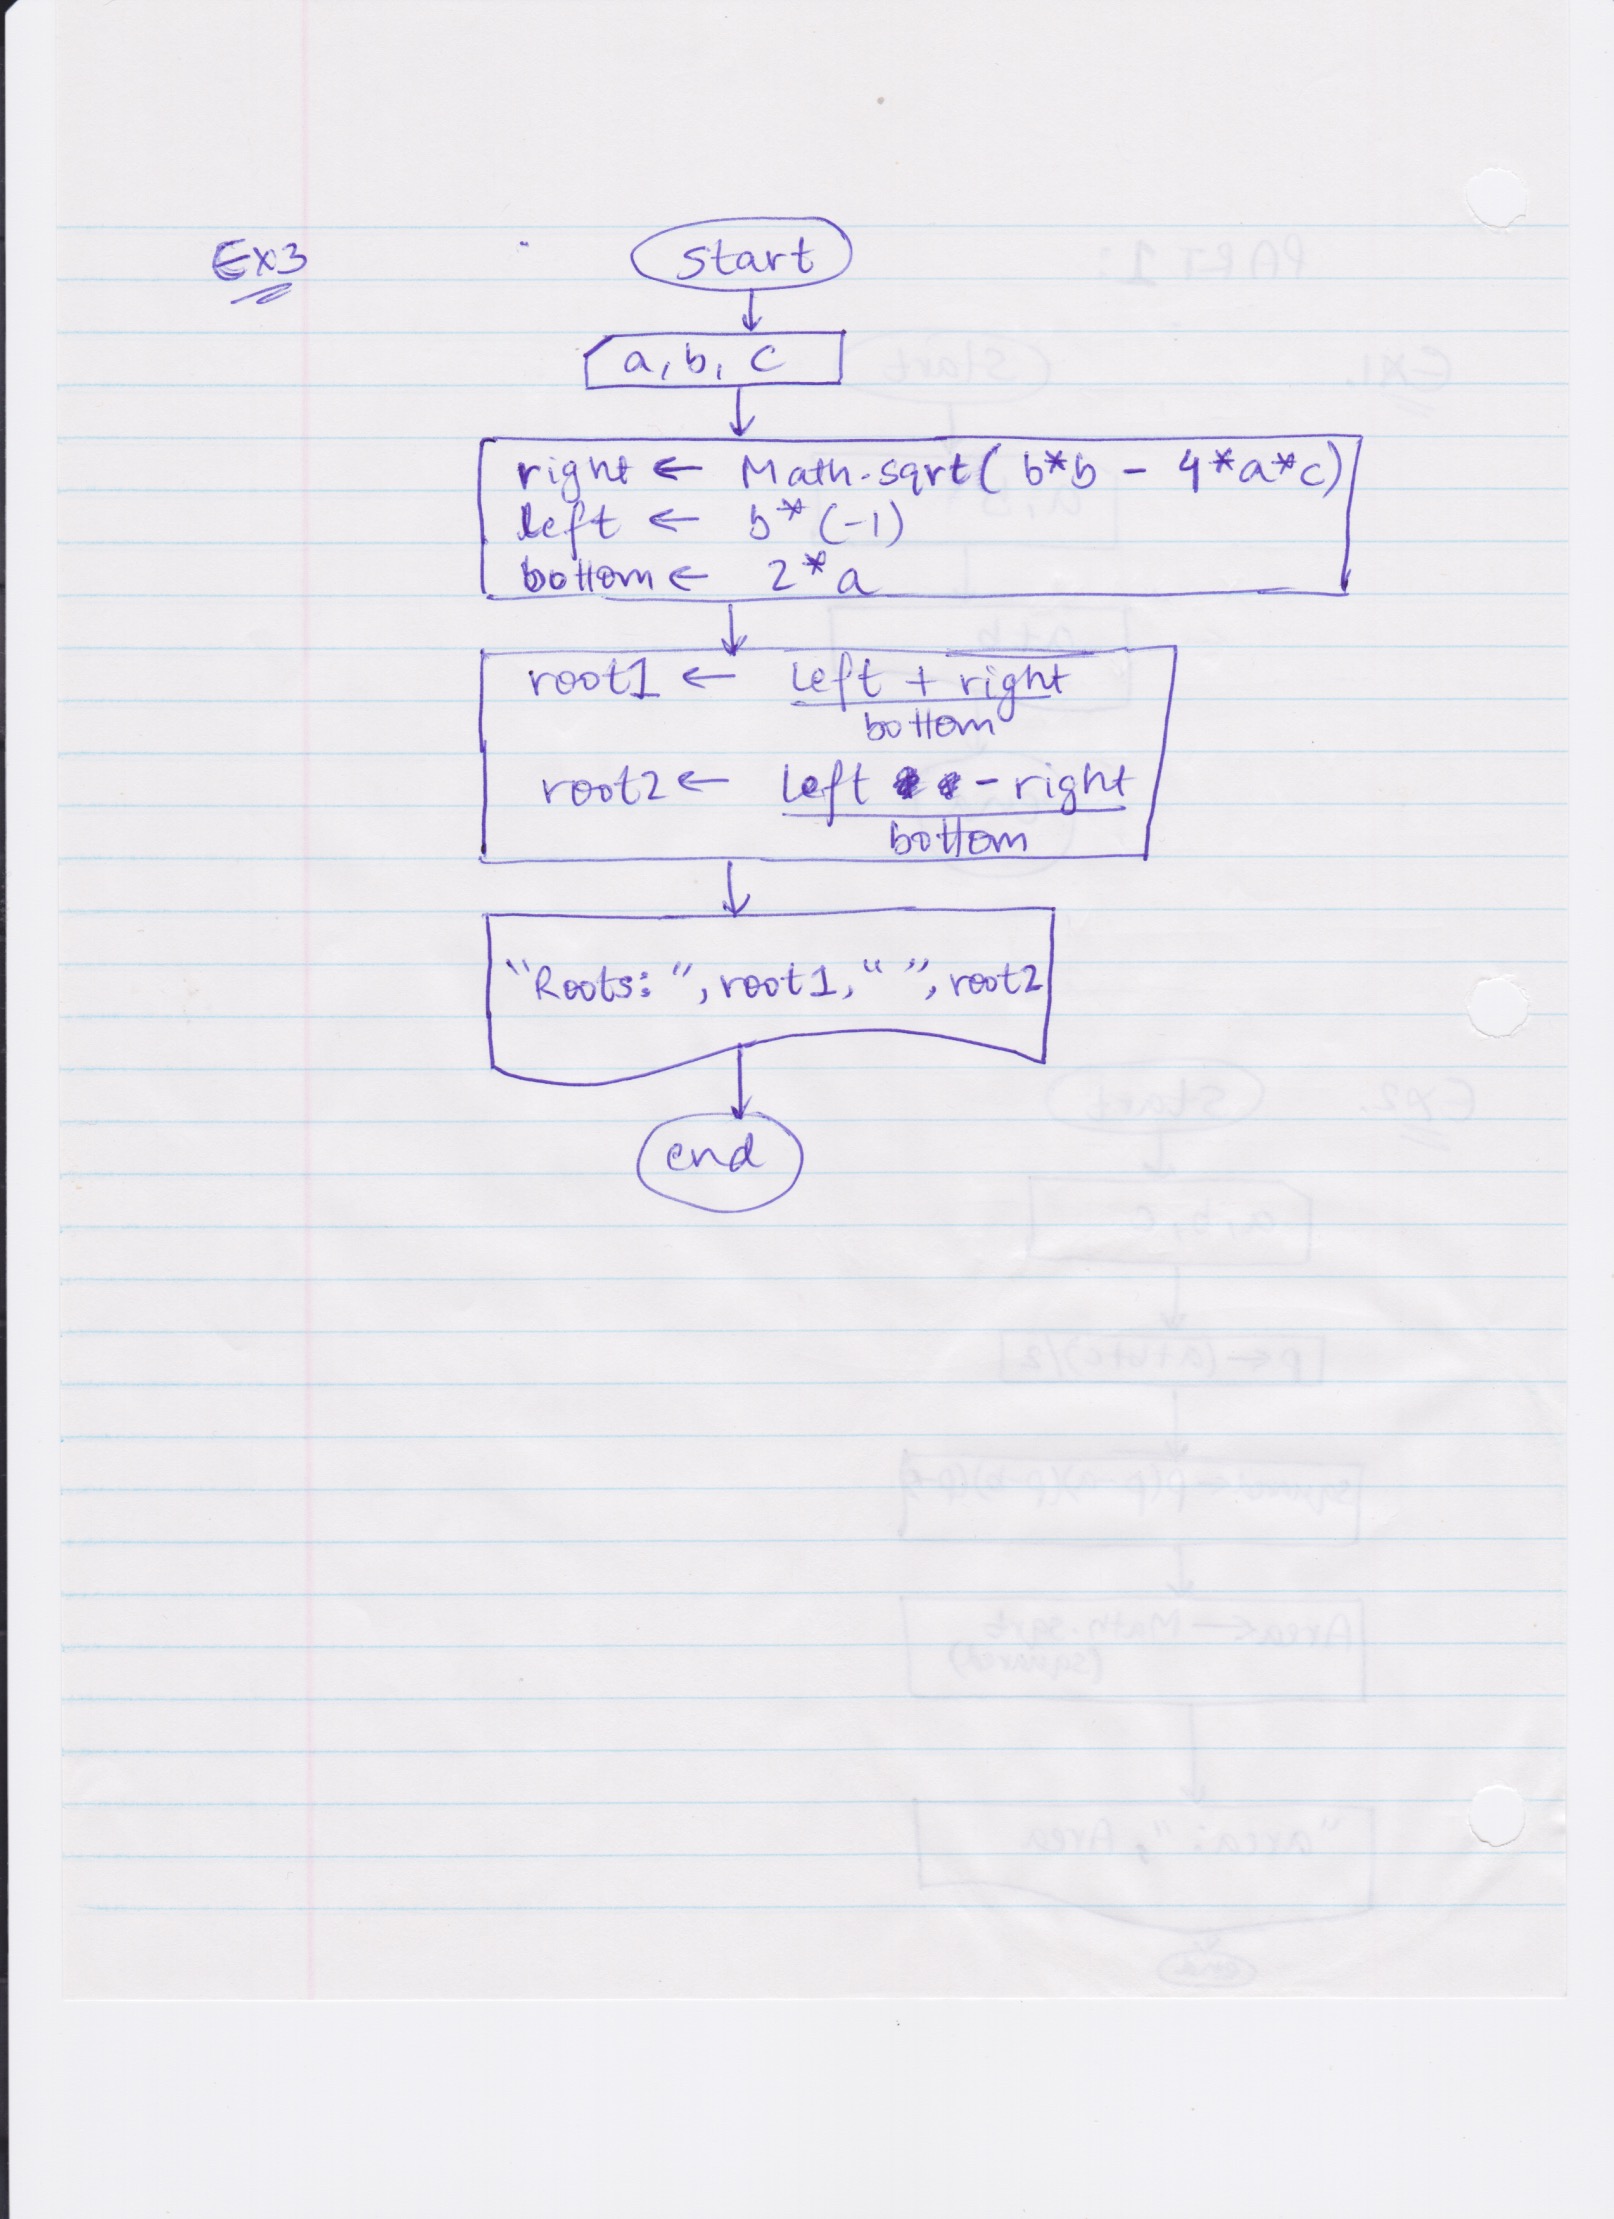 Ex3
start
a, b, c
right ← Math.sqrt( b*b - 4*a*c)
left ← b*(-1)
bottom ← 2*a
root1 ← left + right
bottom
root2 ← left - right
bottom
"Roots: ", root1, " ", root2
end